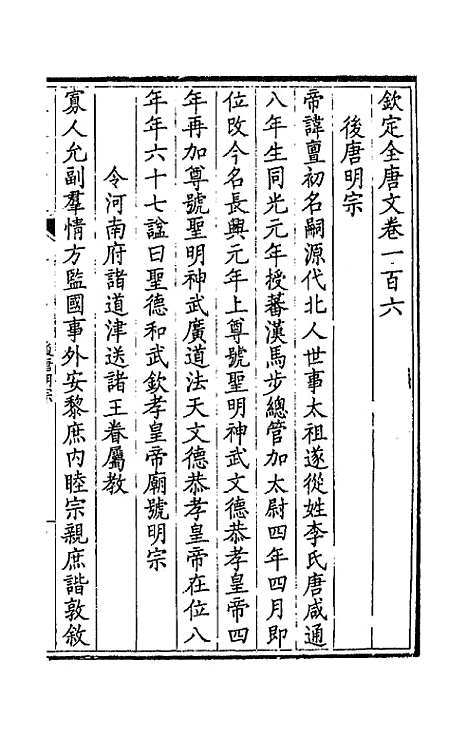 欽定全唐文卷一百六
後唐明宗
帝諱亶初名嗣源代北人世事太祖遂從姓李氏唐咸通
八年生同光元年授蕃漢馬步總管加太尉四年四月即
位改今名長興元年上尊號聖明神武文德恭孝皇帝四
年再加尊號聖明神武廣道法天文德恭孝皇帝在位八
年年六十七諡曰聖德和武欽孝皇帝廟號明宗
令河南府諸道津送諸王眷屬教
寡人允副羣情方監國事外安黎庶內睦宗親庶諧敦敘
後唐明宗